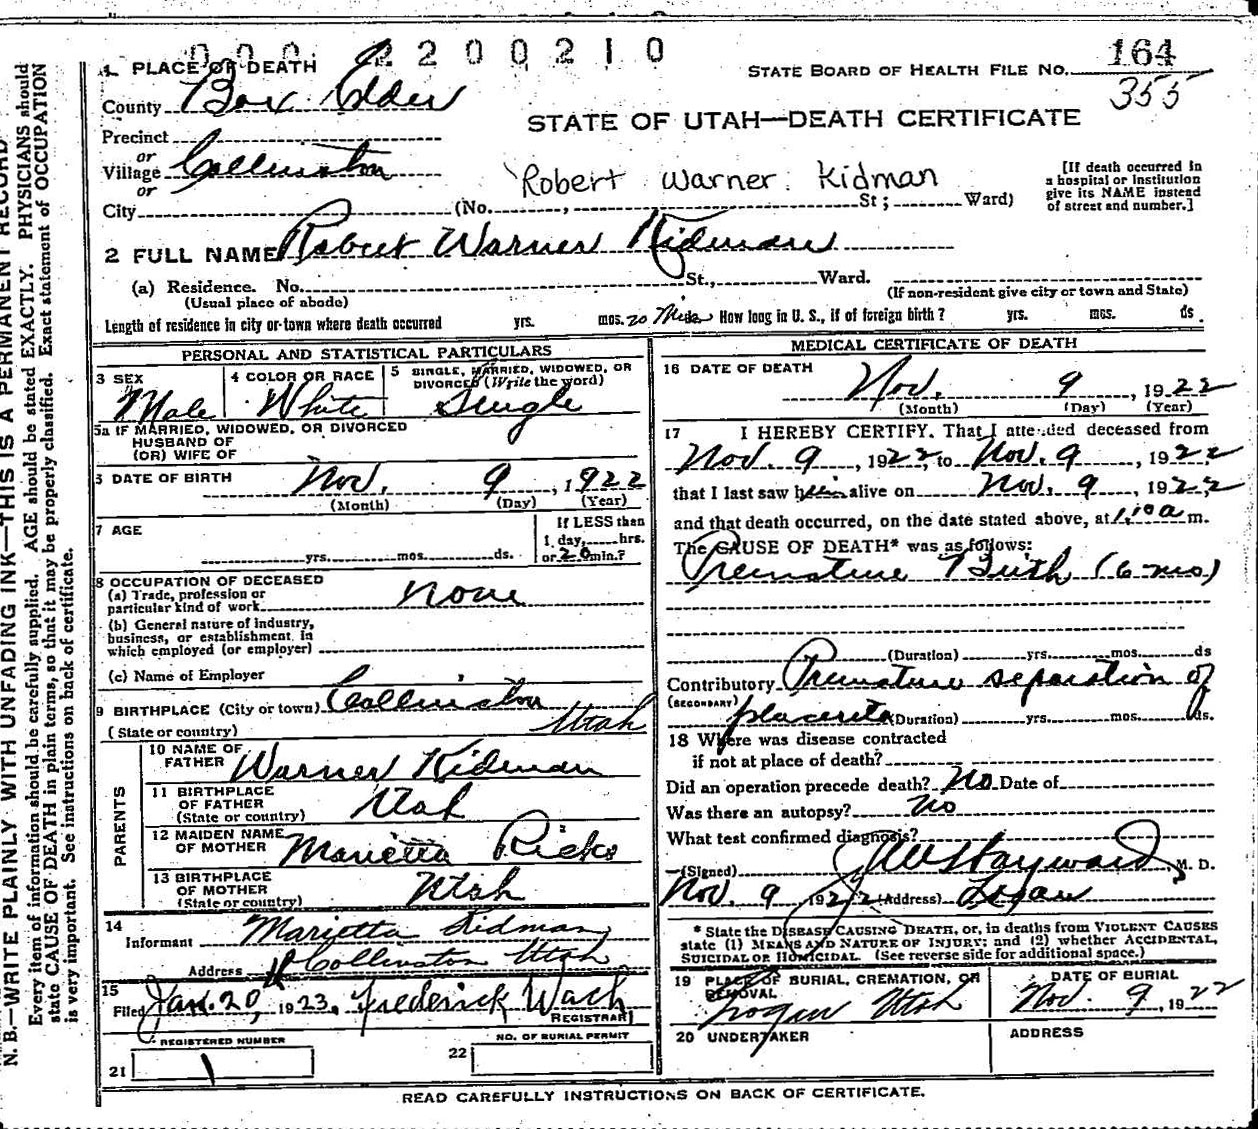 0 0 0 2 2 0 0 2 1 0
1 PLACE OF DEATH
STATE BOARD OF HEALTH FILE NO. 164
355
County Box Elder
STATE OF UTAH—DEATH CERTIFICATE
Precinct
or
Village Collinston
or
Robert Warner Kidman
[If death occurred in
a hospital or institution
give its NAME instead
of street and number.]
City (No. , St; Ward)
2 FULL NAME Robert Warner Kidman
(a) Residence. No. St., Ward.
(Usual place of abode) (If non-resident give city or town and State)
Length of residence in city or town where death occurred yrs. mos. 20 Min How long in U. S., if of foreign birth? yrs. mos. ds.
PERSONAL AND STATISTICAL PARTICULARS
3 SEX 4 COLOR OR RACE 5 SINGLE, MARRIED, WIDOWED, OR
DIVORCED (Write the word)
Male White Single
5a IF MARRIED, WIDOWED, OR DIVORCED
HUSBAND OF
(OR) WIFE OF
3 DATE OF BIRTH Nov. 9, 1922
(Month) (Day) (Year)
7 AGE If LESS than
1 day, hrs.
yrs. mos. ds. or 20 min.?
8 OCCUPATION OF DECEASED
(a) Trade, profession or
particular kind of work None
(b) General nature of industry,
business, or establishment in
which employed (or employer)
(c) Name of Employer
9 BIRTHPLACE (City or town) Collinston
(State or country) Utah
PARENTS
10 NAME OF
FATHER Warner Kidman
11 BIRTHPLACE
OF FATHER
(State or country) Utah
12 MAIDEN NAME
OF MOTHER Marietta Ricks
13 BIRTHPLACE
OF MOTHER
(State or country) Utah
14
Informant Marietta Kidman
Address Collinston Utah
15
Filed Jan. 20, 1923, Frederick Wach
REGISTRAR
REGISTERED NUMBER NO. OF BURIAL PERMIT
21 1 22
MEDICAL CERTIFICATE OF DEATH
16 DATE OF DEATH
Nov. 9, 1922
(Month) (Day) (Year)
17 I HEREBY CERTIFY. That I attended deceased from
Nov. 9, 1922, to Nov. 9, 1922,
that I last saw him alive on Nov. 9, 1922,
and that death occurred, on the date stated above, at 1:00 a m.
The CAUSE OF DEATH* was as follows:
Premature Birth (6 mo)
(Duration) yrs. mos. ds
Contributory Premature separation of
(SECONDARY) placenta (Duration) yrs. mos. ds.
18 Where was disease contracted
if not at place of death?
Did an operation precede death? No Date of
Was there an autopsy? No
What test confirmed diagnosis?
(Signed) Hayward, M. D.
Nov. 9 1922 (Address) Logan
* State the DISEASE CAUSING DEATH, or, in deaths from VIOLENT CAUSES
state (1) MEANS AND NATURE OF INJURY; and (2) whether ACCIDENTAL,
SUICIDAL OR HOMICIDAL. (See reverse side for additional space.)
19 PLACE OF BURIAL, CREMATION, OR
REMOVAL DATE OF BURIAL
Logan Utah Nov. 9, 1922
20 UNDERTAKER ADDRESS
READ CAREFULLY INSTRUCTIONS ON BACK OF CERTIFICATE.
N. B.—WRITE PLAINLY WITH UNFADING INK—THIS IS A PERMANENT RECORD
Every item of information should be carefully supplied. AGE should be stated EXACTLY. PHYSICIANS should
state CAUSE OF DEATH in plain terms, so that it may be properly classified. Exact statement of OCCUPATION
is very important. See instructions on back of certificate.